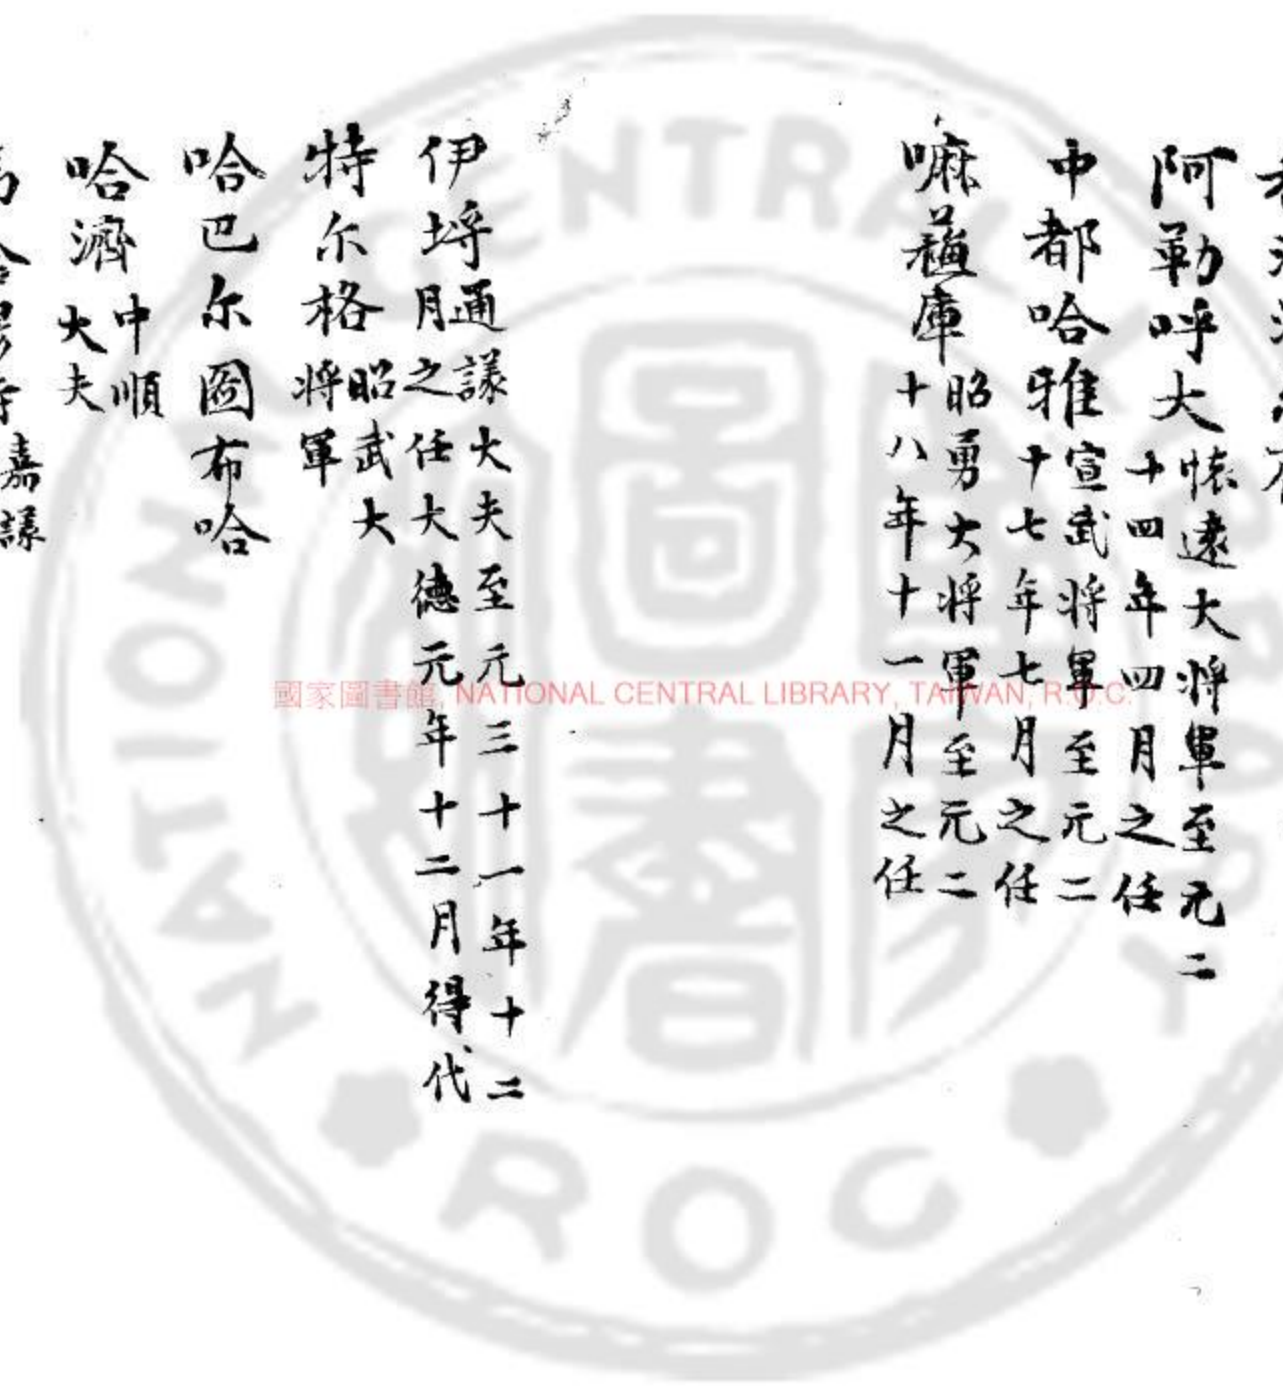 阿勒呼大懷遠大將軍至元二
十四年四月之任
中都哈雅宣武將軍至元二
十七年七月之任
嘛蘓庫昭勇大將軍至元二
十八年十一月之任
伊埒通議大夫至元三十一年十二
月之任大德元年十二月得代
特尔格昭武大
將軍
哈巴尔圖布哈
哈濟中順
大夫
嘉議
國家圖書館, NATIONAL CENTRAL LIBRARY, TAIWAN, R.O.C.
NATIONAL CENTRAL LIBRARY
ROC